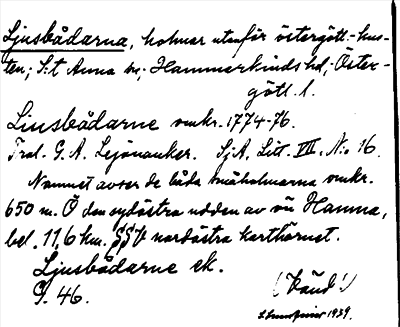 Ljusbådarna, holmar utanför östergött.-kus-
ten; S:t Anna sn; Hammarkinds hd; Öster-
götl. l.
Liusbådarne omkr. 1774-76.
Trol. G. A. Lejonanker. SjA, Litt. VIII, No 16.
Namnet avser de båda småholmarna omkr.
650 m. Ö den sydöstra udden av ön Hamna,
bel. 11,6 km. SSV nordöstra karthörnet.
Ljusbådarne ek.
G. 46.
(Känd!)
1939.